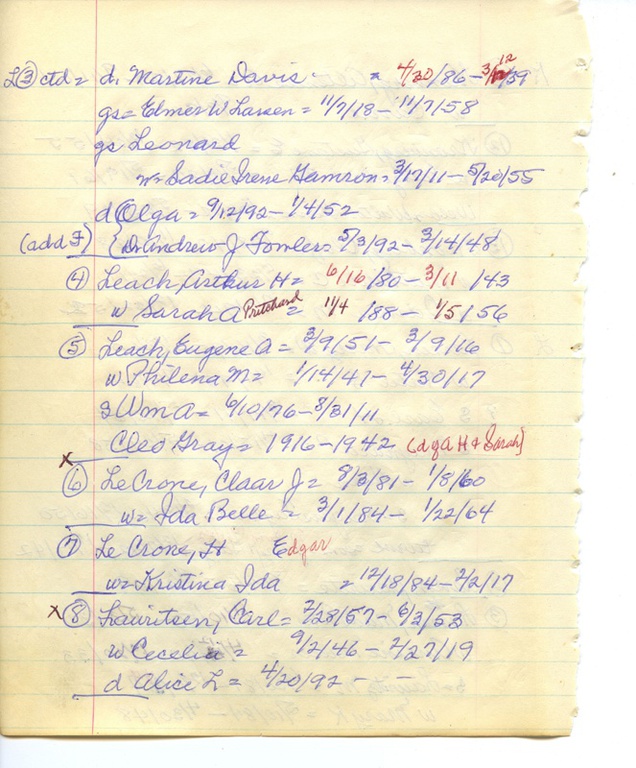 L③ ctd = d. Martine Davis = 4/30/86 - 3/12/39
gs = Elmer W Larsen = 11/7/18 - 11/7/58
gs Leonard
w = Sadie Irene Gamron = 3/17/11 - 5/20/55
d Olga = 9/12/92 - 1/4/52
(add F) { Dr Andrew J Fowler = 5/3/92 - 3/14/48
④ Leach, Arthur H = 6/16/80 - 3/11/43
w Sarah A Pritchard = 11/4/88 - 1/5/56
⑤ Leach, Eugene A = 3/9/51 - 3/9/16
w Philena M = 1/14/41 - 4/30/17
s Wm A = 6/10/76 - 8/31/11
Cleo Gray = 1916 - 1942 (d of A H & Sarah)
x ⑥ LeCrone, Claar J = 8/3/81 - 1/8/60
w = Ida Belle = 3/1/84 - 1/22/64
⑦ Le Crone, H Edgar
w = Kristina Ida = 12/18/84 - 2/2/17
x ⑧ Lauritsen, Carl = 7/28/57 - 6/2/53
w Cecelia = 9/2/46 - 2/27/19
d Alice L = 4/20/92 - -